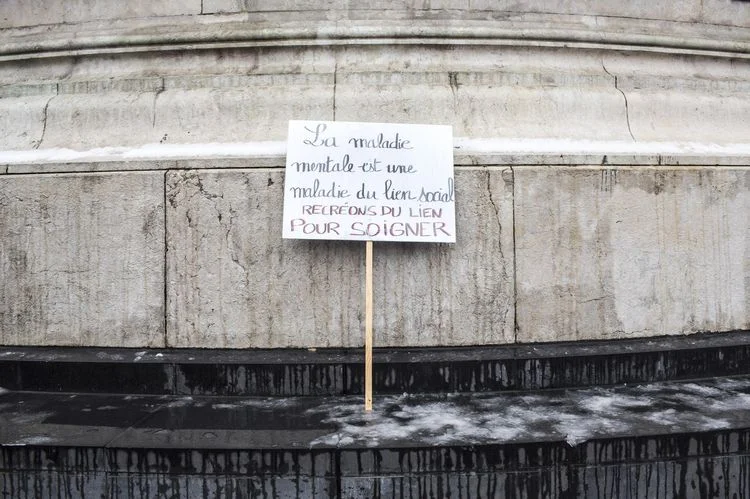 La maladie
mentale est une
maladie du lien social
RECRÉONS DU LIEN
POUR SOIGNER